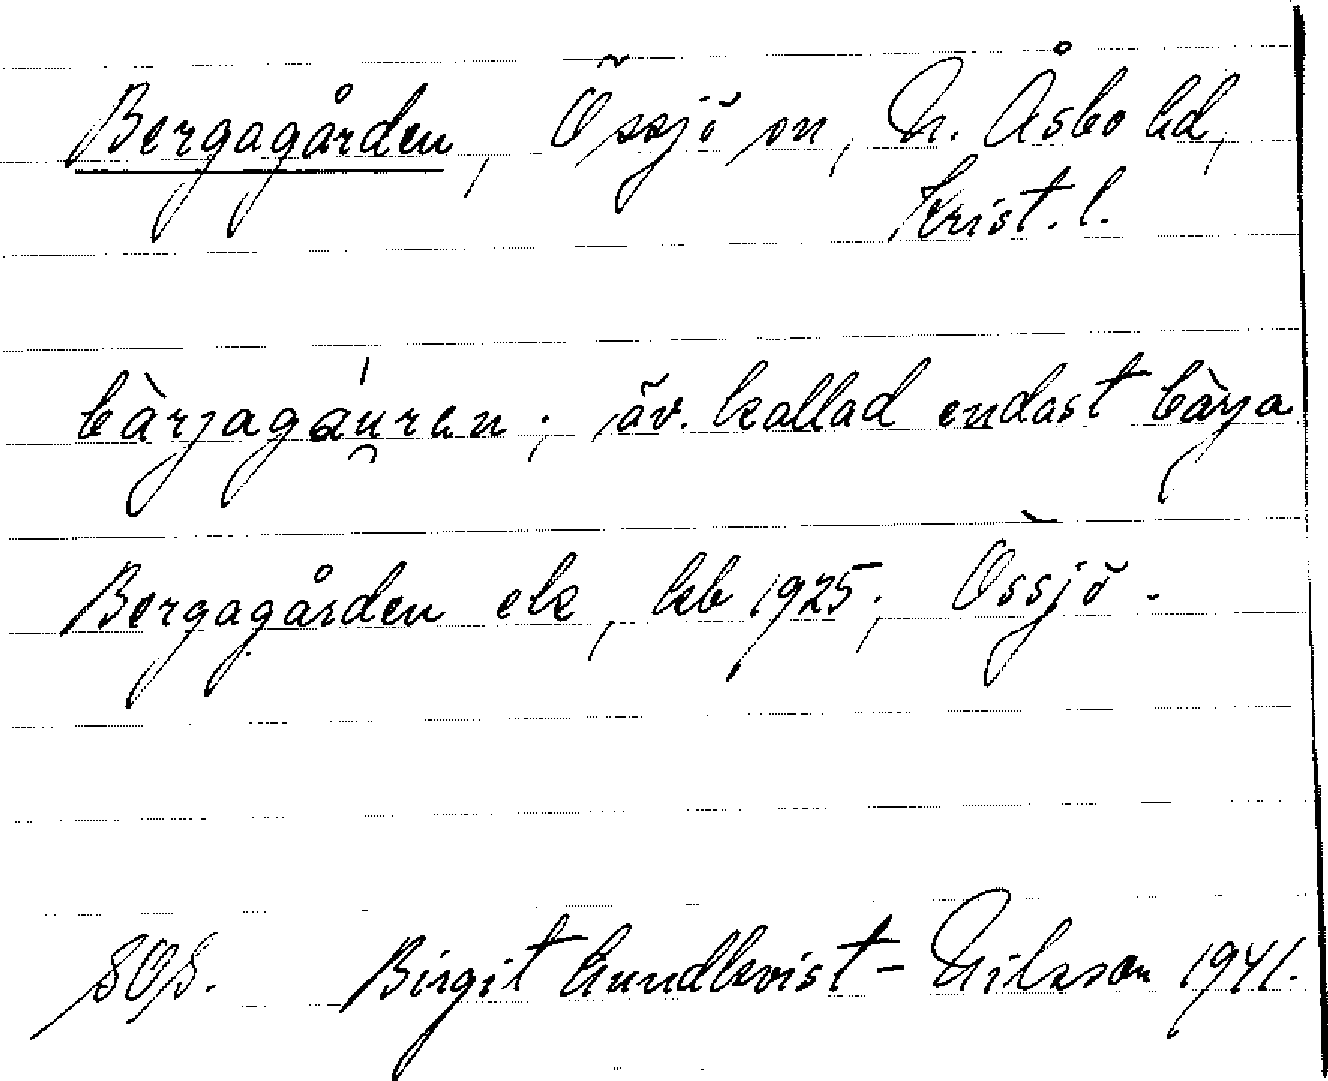 Bergagården, Össjö sn, N. Åsbo hd,
Krist. l.
bàrjagáu̯ren ; äv. kallad endast bàrja
Bergagården ek, kb 1925; Össjö.
SOS. Birgit Lundkvist-Nilsson 1941.